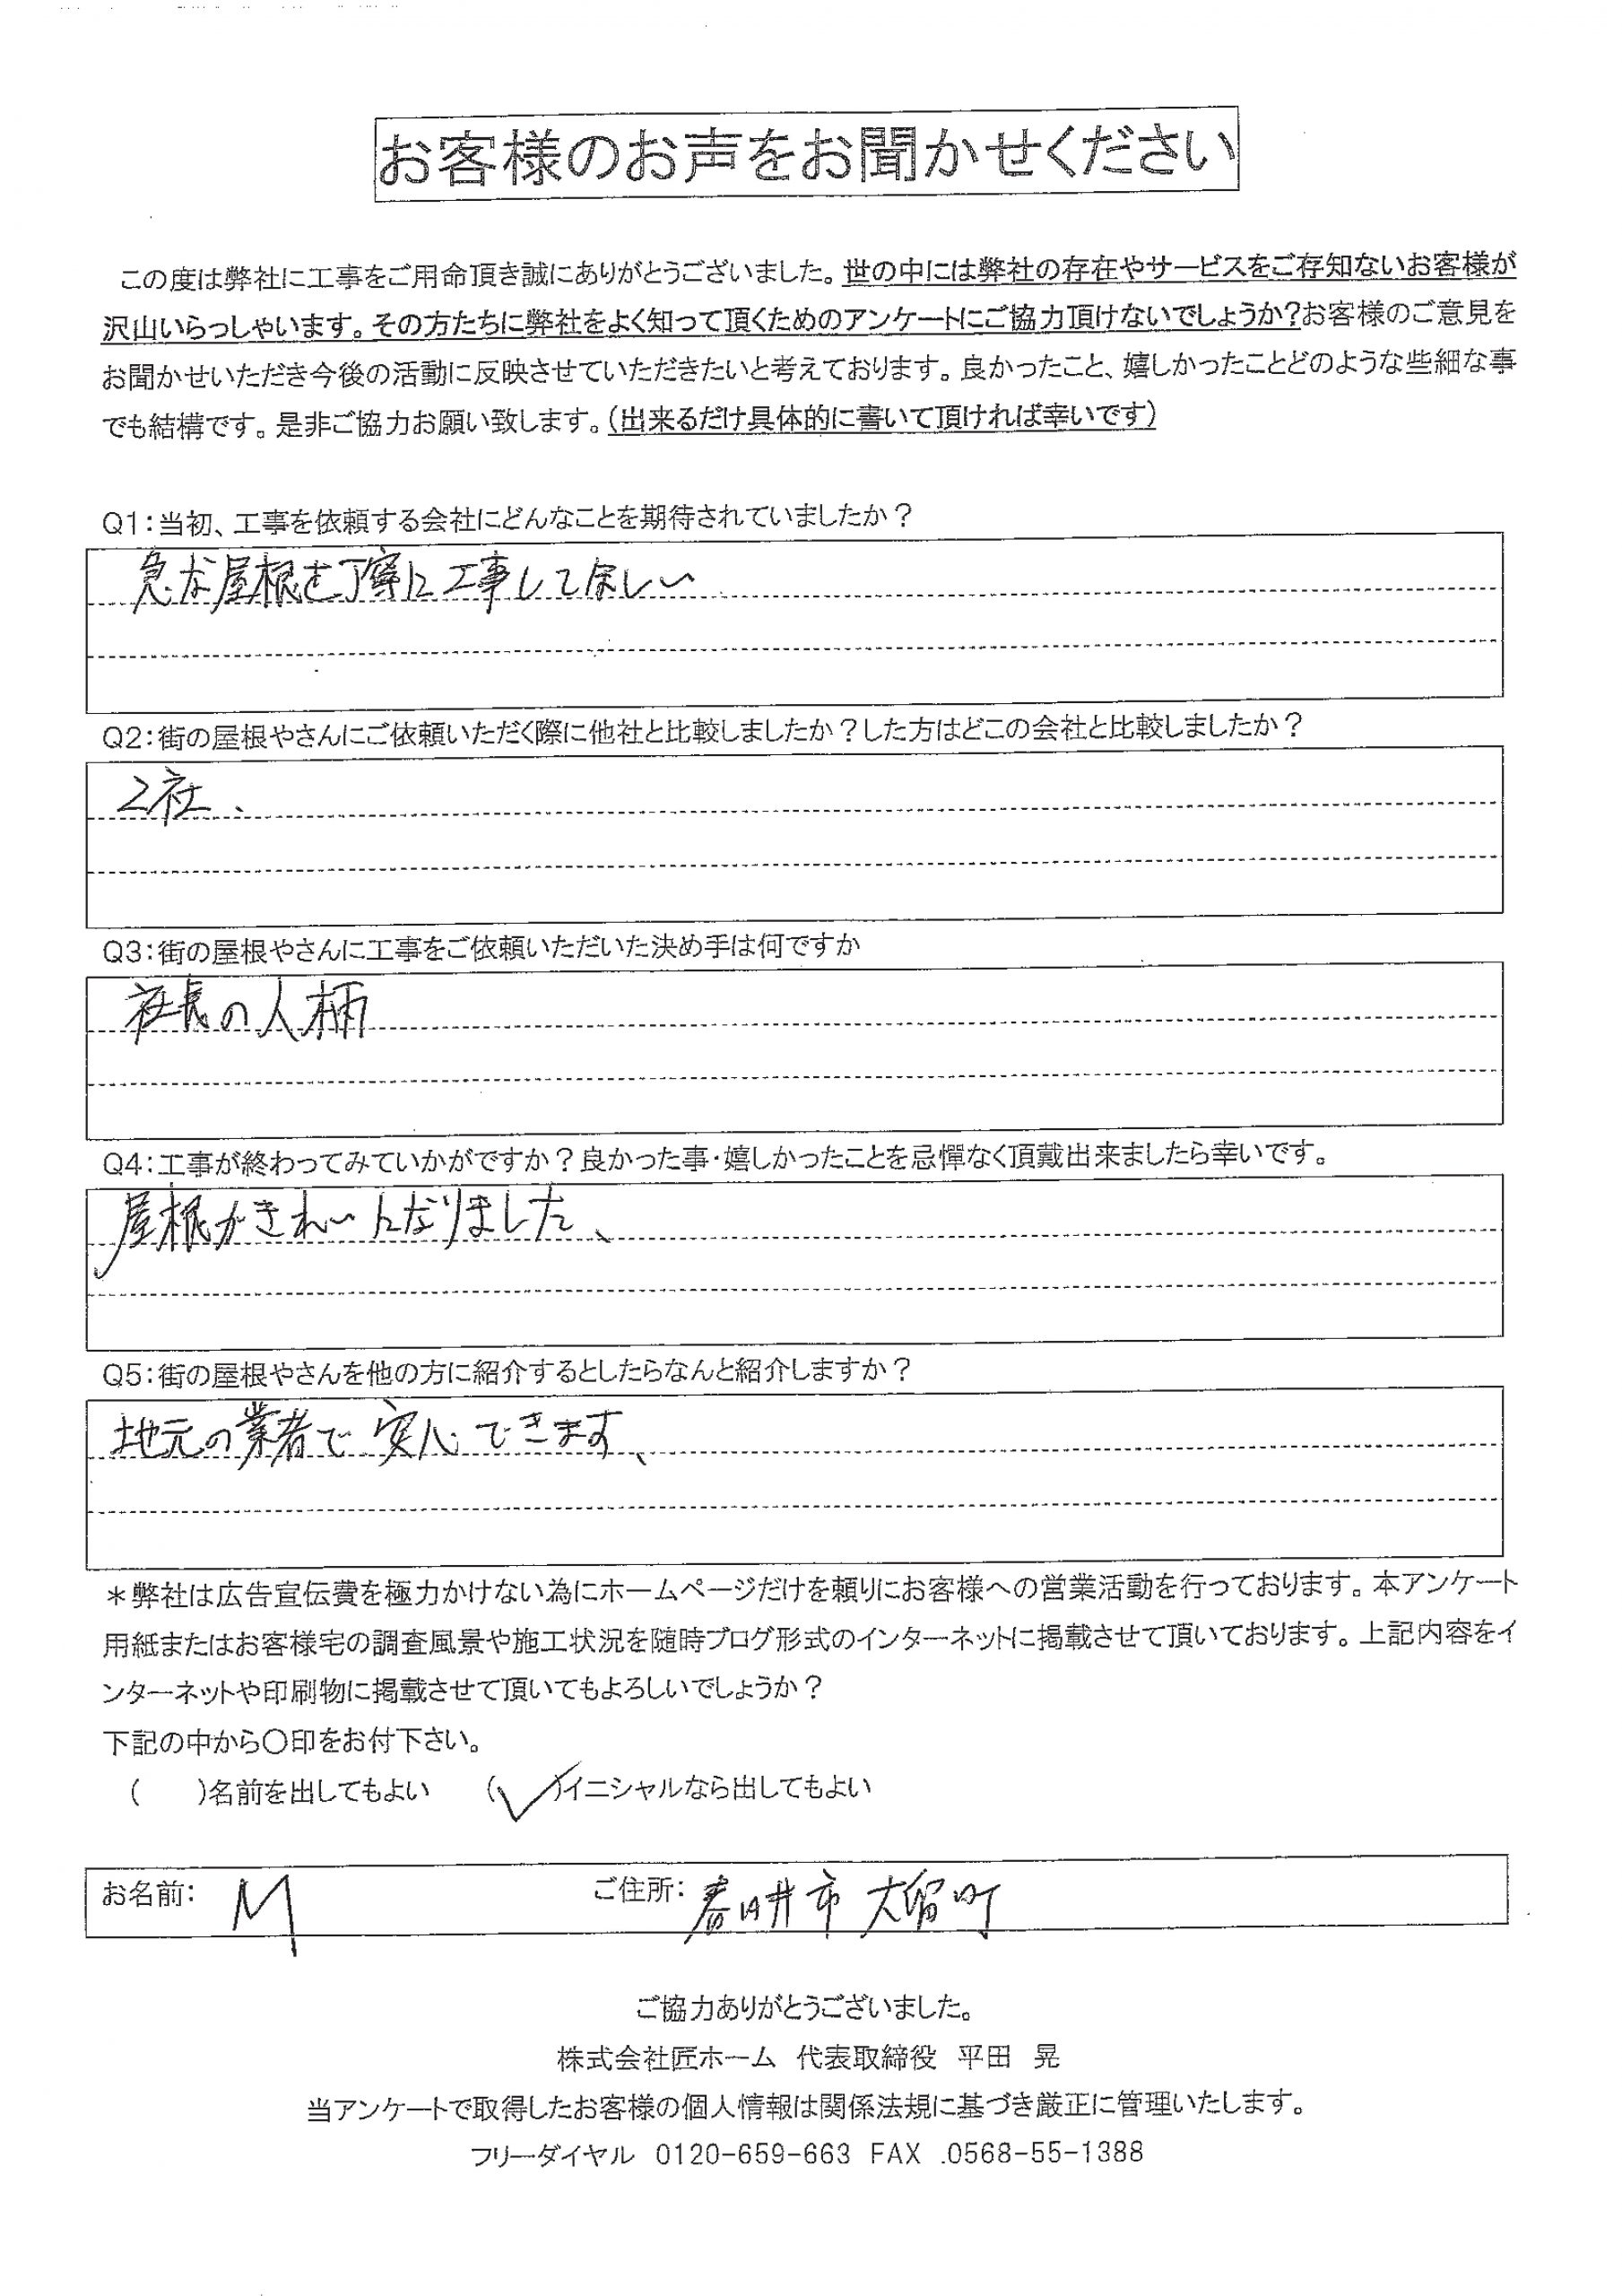 お客様のお声をお聞かせください
この度は弊社に工事をご用命頂き誠にありがとうございました。世の中には弊社の存在やサービスをご存知ないお客様が
沢山いらっしゃいます。その方たちに弊社をよく知って頂くためのアンケートにご協力頂けないでしょうか?お客様のご意見を
お聞かせいただき今後の活動に反映させていただきたいと考えております。良かったこと、嬉しかったことどのような些細な事
でも結構です。是非ご協力お願い致します。(出来るだけ具体的に書いて頂ければ幸いです)
Q1:当初、工事を依頼する会社にどんなことを期待されていましたか?
急な屋根を丁寧に工事してほしい
Q2:街の屋根やさんにご依頼いただく際に他社と比較しましたか?した方はどこの会社と比較しましたか?
2社、
Q3:街の屋根やさんに工事をご依頼いただいた決め手は何ですか
社長の人柄
Q4:工事が終わってみていかがですか?良かった事・嬉しかったことを忌憚なく頂戴出来ましたら幸いです。
屋根がきれいになりました、
Q5:街の屋根やさんを他の方に紹介するとしたらなんと紹介しますか?
地元の業者で安心できます、
*弊社は広告宣伝費を極力かけない為にホームページだけを頼りにお客様への営業活動を行っております。本アンケート
用紙またはお客様宅の調査風景や施工状況を随時ブログ形式のインターネットに掲載させて頂いております。上記内容をイ
ンターネットや印刷物に掲載させて頂いてもよろしいでしょうか?
下記の中から〇印をお付下さい。
( )名前を出してもよい (✓)イニシャルなら出してもよい
お名前: M ご住所: 春日井市大留町
ご協力ありがとうございました。
株式会社匠ホーム 代表取締役 平田 晃
当アンケートで取得したお客様の個人情報は関係法規に基づき厳正に管理いたします。
フリーダイヤル 0120-659-663 FAX .0568-55-1388